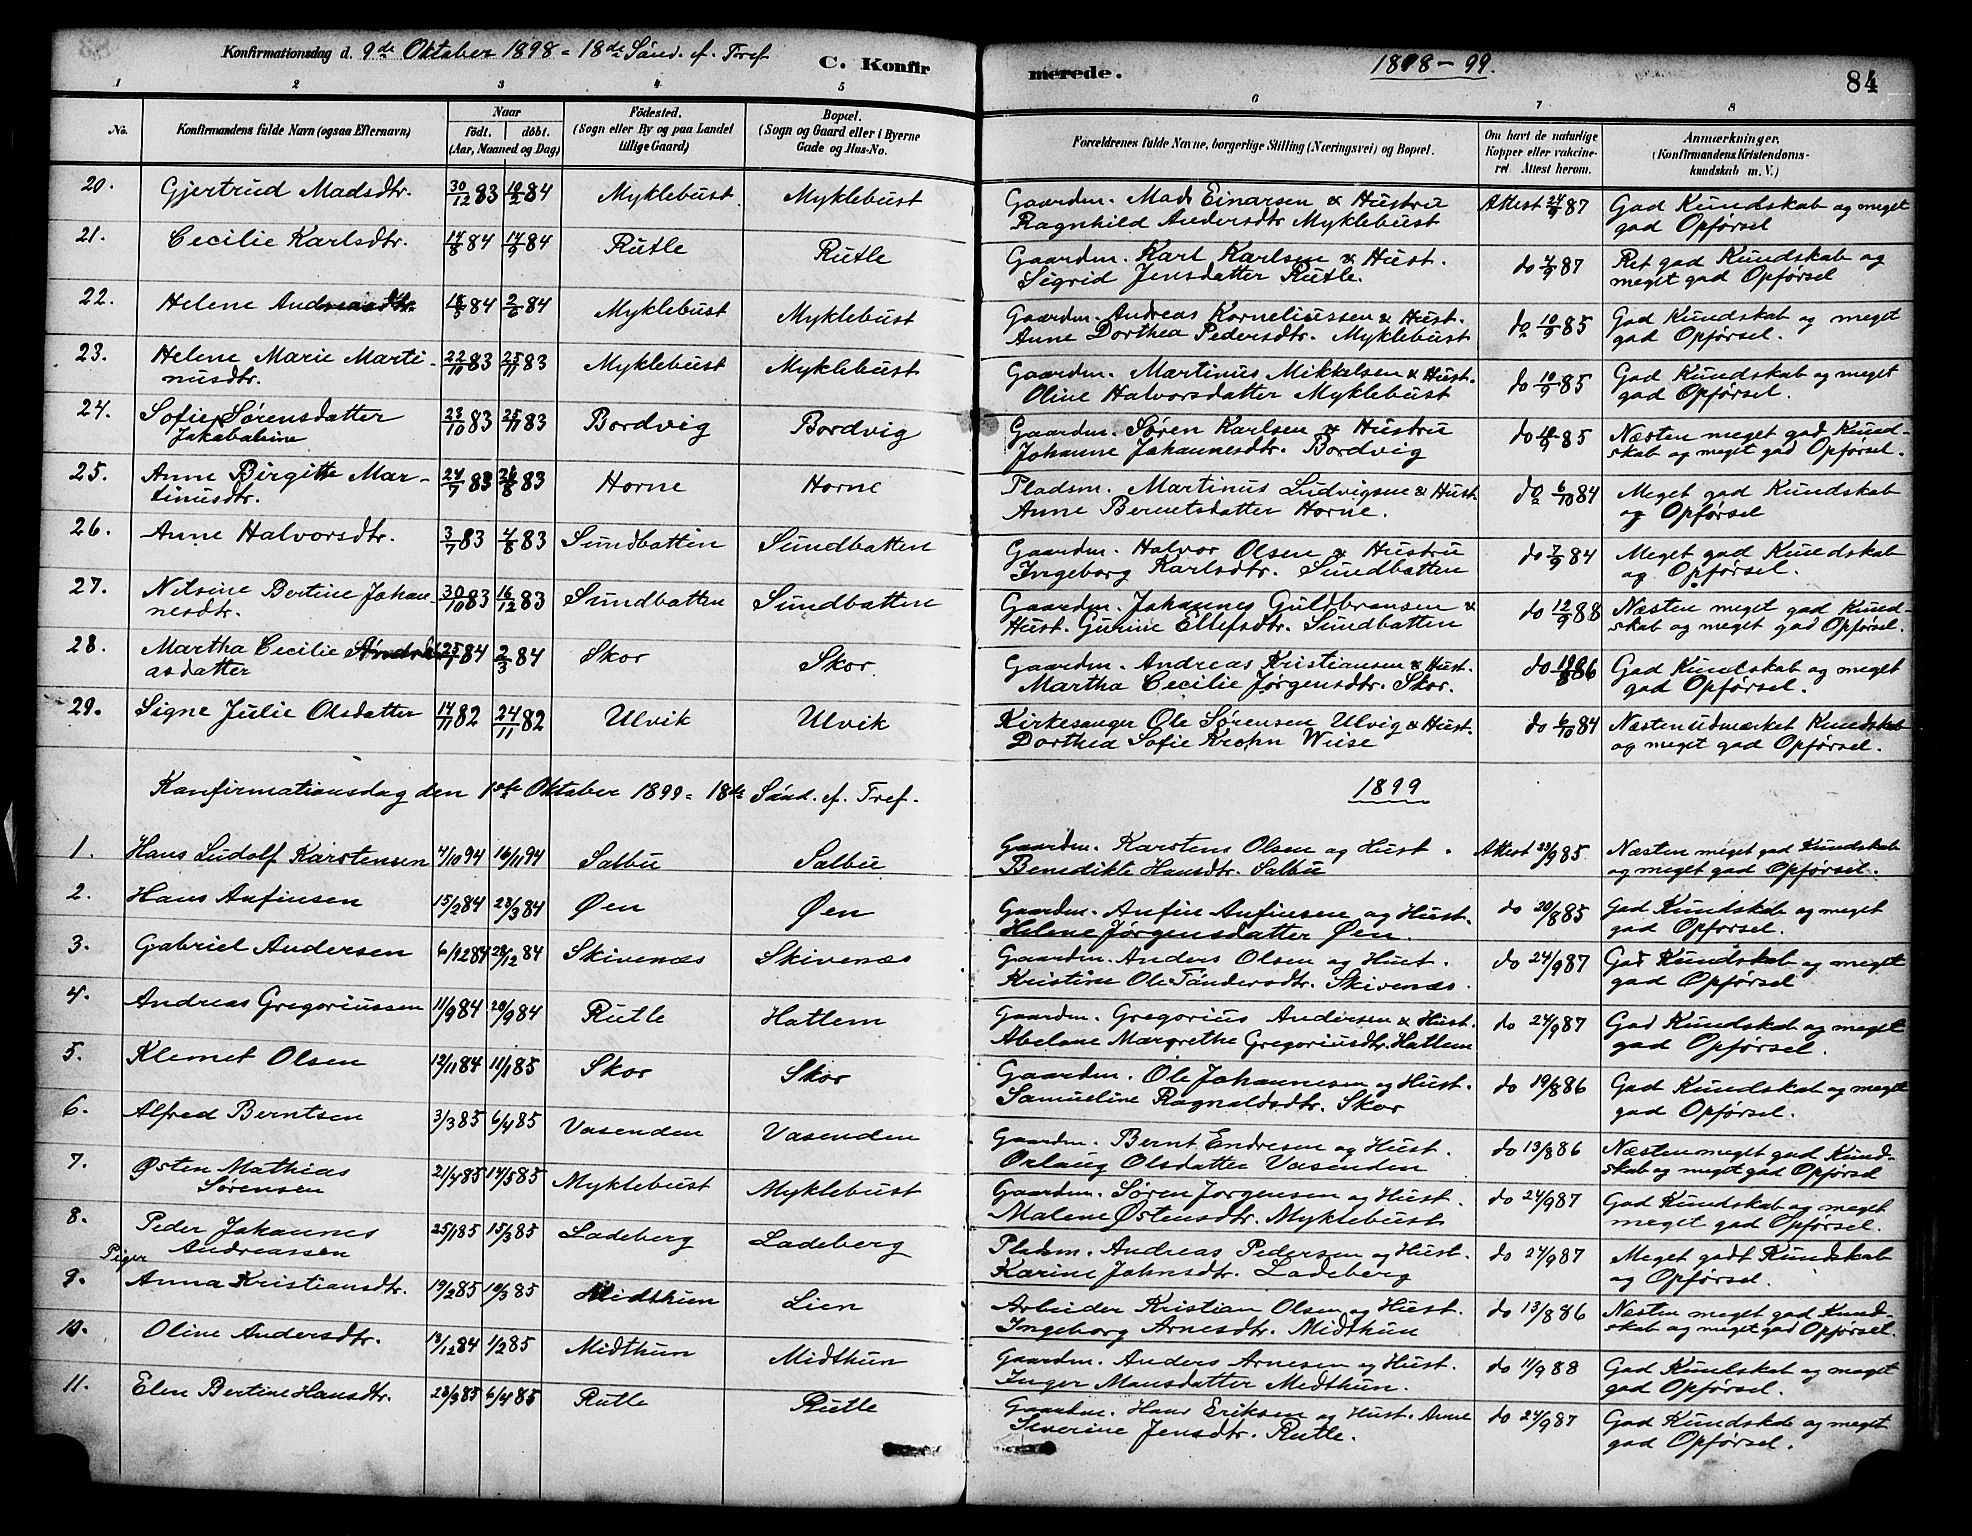 Konfirmationsdag d. 9de Oktober 1898 - 18de Sönd. ef. Tref. C. Konfirmerede. 1898-99. 84
1 2 3 4 5 6 7 8
No. Konfirmandens fulde Navn (ogsaa Efternavn) Naar födt. döbt. (Aar, Maaned og Dag) Födested. (Sogn eller By og paa Landet tillige Gaard) Bopæl. (Sogn og Gaard eller i Byerne Gade og Hus-No. Forældrenes fulde Navne, borgerlige Stilling (Næringsvei) og Bopæl. Om havt de naturlige Kopper eller vakcineret. Attest herom. Anmærkninger, (Konfirmandens Kristendomskundskab m. V.)
20. Gjertrud Madsdtr. 30/12 83 10/2 84 Myklebust Myklebust Gaardm. Mads Einarsen & Hustru Attest 24/9 87 God Kundskab og meget
Ragnhild Andersdtr Myklebust god Opførsel
21. Cecilie Karlsdtr. 14/8 84 14/9 84 Rutle Rutle Gaardm. Karl Karlsen & Hust. do 4/9 87 Ret god Kundskab og
Sigrid Jensdatter Rutle. meget god Opførsel
22. Helene Andreasdtr. 2/6 84 Myklebust Myklebust Gaardm. Andreas Korneliussen & Hust. do 10/9 85 God Kundskab og meget
Anne Dorthea Pedersdtr. Myklebust god Opførsel.
23. Helene Marie Marti- 22/10 83 25/11 83 Myklebust Myklebust Gaardm. Martinus Mikkelsen & Hust. do 10/9 85 God Kundskab og meget
nusdtr. Oline Halvorsdatter Myklebust god Opførsel.
24. Sofie Sørensdatter 23/10 83 25/11 83 Bordvig Bordvig Gaardm. Søren Karlsen & Hustru do 85 Næsten meget god Kund-
Jakobaleine Johanne Johannesdtr. Bordvig skab og meget god Opførsel.
25. Anne Birgitte Mar- 24/7 83 26/8 83 Horne Horne Pladsm. Martinus Ludvigsen & Hust do 6/10 84 Meget god Kundskab
tinusdtr. Anne Berentsdatter Horne. og Opførsel
26. Anne Halvorsdtr. 3/7 83 4/8 83 Sundbatten Sundbatten Gaardm. Halvor Olsen & Hustru do 7/9 84 Meget god Kundskab
Ingeborg Karlsdtr. Sundbatten og Opførsel.
27. Nilsine Bertine Johan- 30/10 83 16/12 83 Sundbatten Sundbatten Gaardm. Johannes Guldbransen & do 12/9 88 Næsten meget god Kund-
nesdtr. Hust. Gurine Ellefsdtr. Sundbatten skab og meget god Opførsel.
28. Martha Cecilie Andre- 25/1 84 2/3 84 Skor Skor Gaardm. Andreas Kristiansen & Hust. do 19/8 86 God Kundskab og meget
asdatter Martha Cecilie Jørgensdtr. Skor. god Opførsel.
29. Signe Julie Olsdatter 14/11 82 24/11 82 Ulvik Ulvik Kirkesanger Ole Sørensen Ulvig & Hust. do 6/10 84 Næsten udmærket Kundskab
Dorthea Sofie Krohn Wiise og meget god Opførsel.
Konfirmationsdag den 1ste Oktober 1899 - 18de Sönd. ef. Tref. 1899
1. Hans Ludolf Karstensen 4/10 94 16/11 94 Salbu Salbu Gaardm. Karstens Olsen og Hust. Attest 23/9 85. Næsten meget god Kundskab
Benedikte Hansdtr. Salbu og meget god Opførsel.
2. Hans Anfinsen 15/2 84 23/3 84 Øen Øen Gaardm. Anfin Anfinsen og Hust. do 20/8 85 God Kundskab og meget
Helene Jørgensdatter Øen. god Opførsel.
3. Gabriel Andersen 6/12 84 28/12 84 Skivenæs Skivenæs Gaardm. Anders Olsen og Hust. do 24/9 87 God Kundskab og meget
Kristine Ole Tøndersdtr. Skivenæs. god Opførsel
4. Andreas Gregoriussen 11/9 84 20/9 84 Rutle Hatlem Gaardm. Gregorius Andersen & Hust. do 24/9 87 God Kundskab og meget
Abelone Margrethe Gregoriusdtr. Hatlem god Opførsel.
5. Klemet Olsen 12/11 84 11/1 85 Skor Skor Gaardm. Ole Johannesen og Hust. do 19/8 86 God Kundskab og meget
Samueline Ragnaldsdtr. Skor god Opførsel.
6. Alfred Berntsen 3/3 85 6/4 85 Vasenden Vasenden Gaardm. Bernt Endresen og Hust. do 13/8 86 Næsten meget god Kund-
Orlaug Olsdatter Vasenden skab og meget god Opførsel
7. Østen Mathias 21/4 85 14/5 85 Myklebust Myklebust Gaardm. Søren Jørgensen og Hust. do 24/9 87 God Kundskab og meget
Sørensen Malene Østensdtr. Myklebust meget god Opførsel.
8. Peder Johannes 25/1 85 15/3 85 Ladeberg Ladeberg Pladsm. Andreas Pedersen og Hust. do 24/9 87 Meget godt Kundskab
Andreassen Karine Johnsdtr. Ladeberg og Opførsel.
Piger
9. Anna Kristiansdtr. 19/2 85 19/3 85 Midthun Lien Arbeider Kristian Olsen og Hust. do 13/8 86 Næsten meget god Kund-
Ingeborg Arnesdtr. Midthun skab og meget god Opførsel.
10. Oline Andersdtr. 13/12 84 1/2 85 Midthun Midthun Gaardm. Anders Arnesen og Hust. do 11/9 88 God Kundskab og meget
Inger Monsdatter Midthun. god Opførsel.
11. Elen Bertine Hansdtr. 23/3 85 6/4 85 Rutle Rutle Gaardm. Hans Eriksen og Hust. Anne do 24/9 87 God Kundskab og meget
Severine Jensdtr. Rutle. god Opførsel.